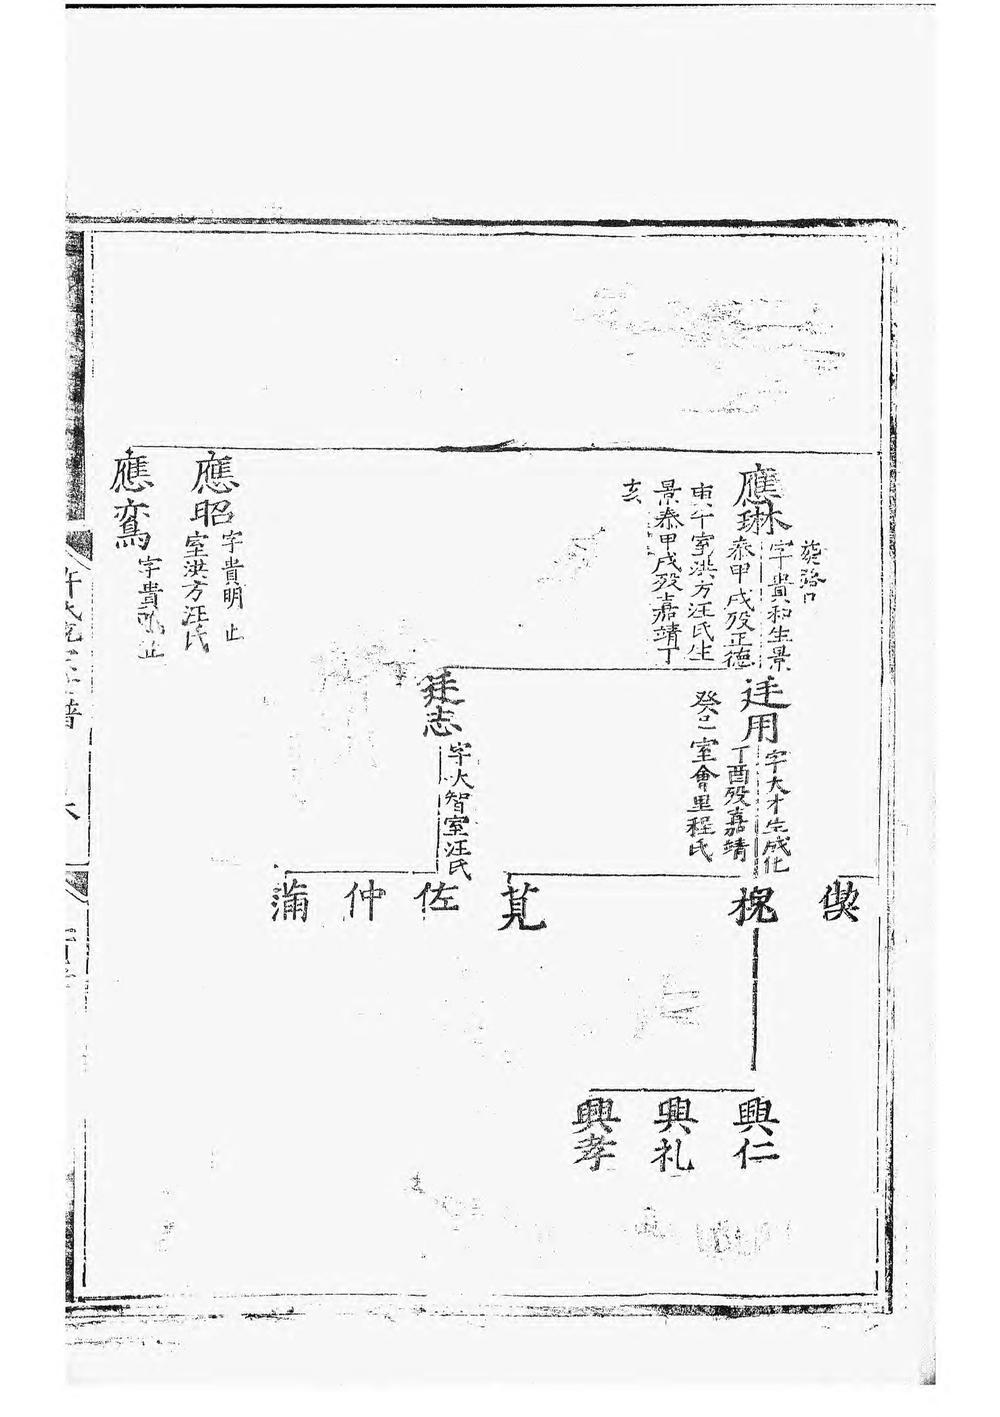 應琳
字貴和生景
泰甲戌歿正德
庚午室洪方汪氏生
景泰甲戌歿嘉靖丁
亥
應昭
字貴明止
室洪方汪氏
應鸞
字貴
止
廷用
字大才生成化
丁酉歿嘉靖
癸巳室會里程氏
廷志
字大智室汪氏
僕
槐
莧
佐
仲
蒲
興仁
興礼
興孝
許氏
譜